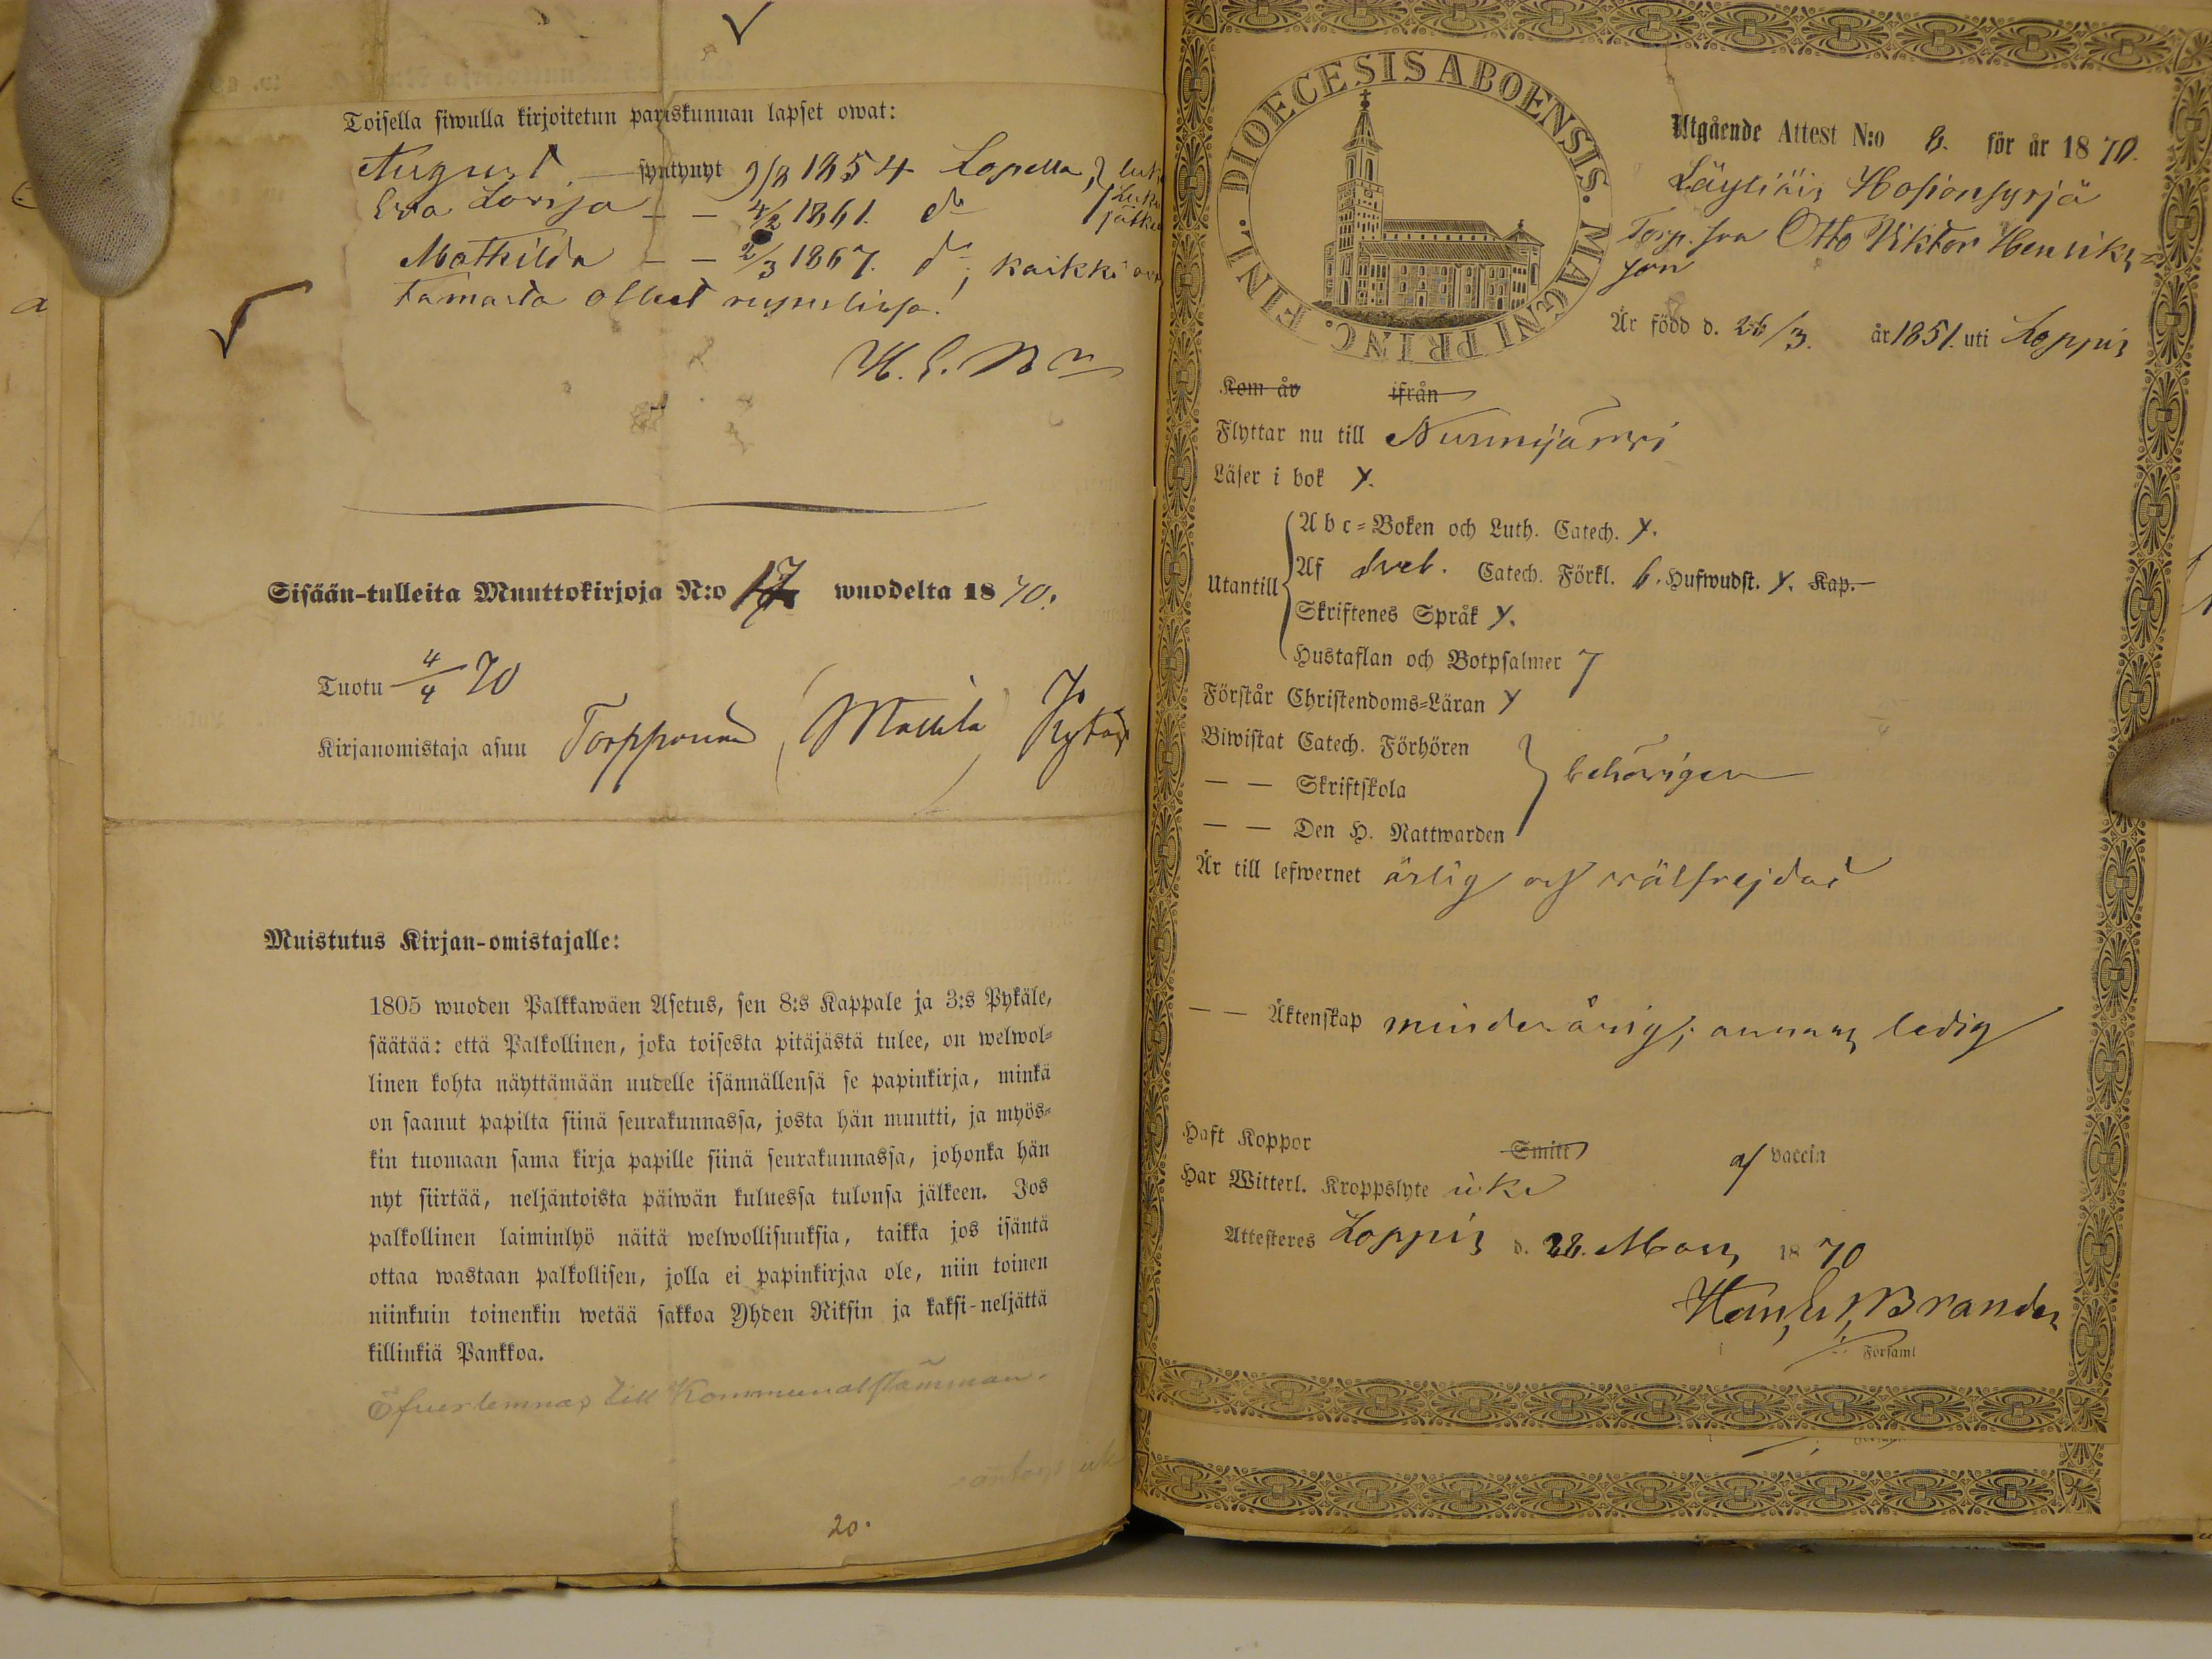 Toisella siwulla kirjoitetun pariskunnan lapset owat:
August syntynyt 9/8 1854 Lopella,
Eva Lovisa — — 4/2 1861. do
Mathilda — — 2/3 1867. do, kaikki
tamasta olleet
H. E. Br
Sisään-tulleita Muuttokirjoja N:o 17 wuodelta 1870.
Tuotu 4/4 70
Kirjanomistaja asuu
Muistutus Kirjan-omistajalle:
1805 wuoden Palkkawäen Asetus, sen 8:s Kappale ja 3:s Pykäle,
säätää: että Palkollinen, joka toisesta pitäjästä tulee, on welwol=
linen kohta näyttämään uudelle isännällensä se papinkirja, minkä
on saanut papilta siinä seurakunnassa, josta hän muutti, ja myös=
kin tuomaan sama kirja papille siinä seurakunnassa, johonka hän
nyt siirtää, neljäntoista päiwän kuluessa tulonsa jälkeen. Jos
palkollinen laiminlyö näitä welwollisuuksia, taikka jos isäntä
ottaa wastaan palkollisen, jolla ei papinkirjaa ole, niin toinen
niinkuin toinenkin wetää sakkoa Yhden Riksin ja kaksi-neljättä
killinkiä Pankkoa.
Öfverlemnas till Kommunalstämman.
20.
DIOECESIS ABOENSIS. MAGNI PRINC. FINL.
Utgående Attest N:o 8. för år 1870.
Läyliäis Hosionsyrjä
Torp. son Otto Viktor Henriks=
son
Är född d. 26/3. år 1851. uti Loppis
Kom år ifrån
Flyttar nu till Nurmijärwi
Läser i bok y.
Utantill
Abc=Boken och Luth. Catech. y.
Af Sveb. Catech. Förkl. 6. Hufwudst. y. Kap.
Skriftenes Språk y.
Hustaflan och Botpsalmer 7
Förstår Christendoms=Läran y
Biwistat Catech. Förhören
— — Skriftskola behörigen
— — Den H. Nattwarden
Är till lefwernet ärlig och wälfrejdad
— — Äktenskap minderårig; annars ledig
Haft Koppor Smitt af vaccin
Har Witterl. Kroppslyte icke
Attesteres Loppis d. 28. Mars 1870
Brander
Församl